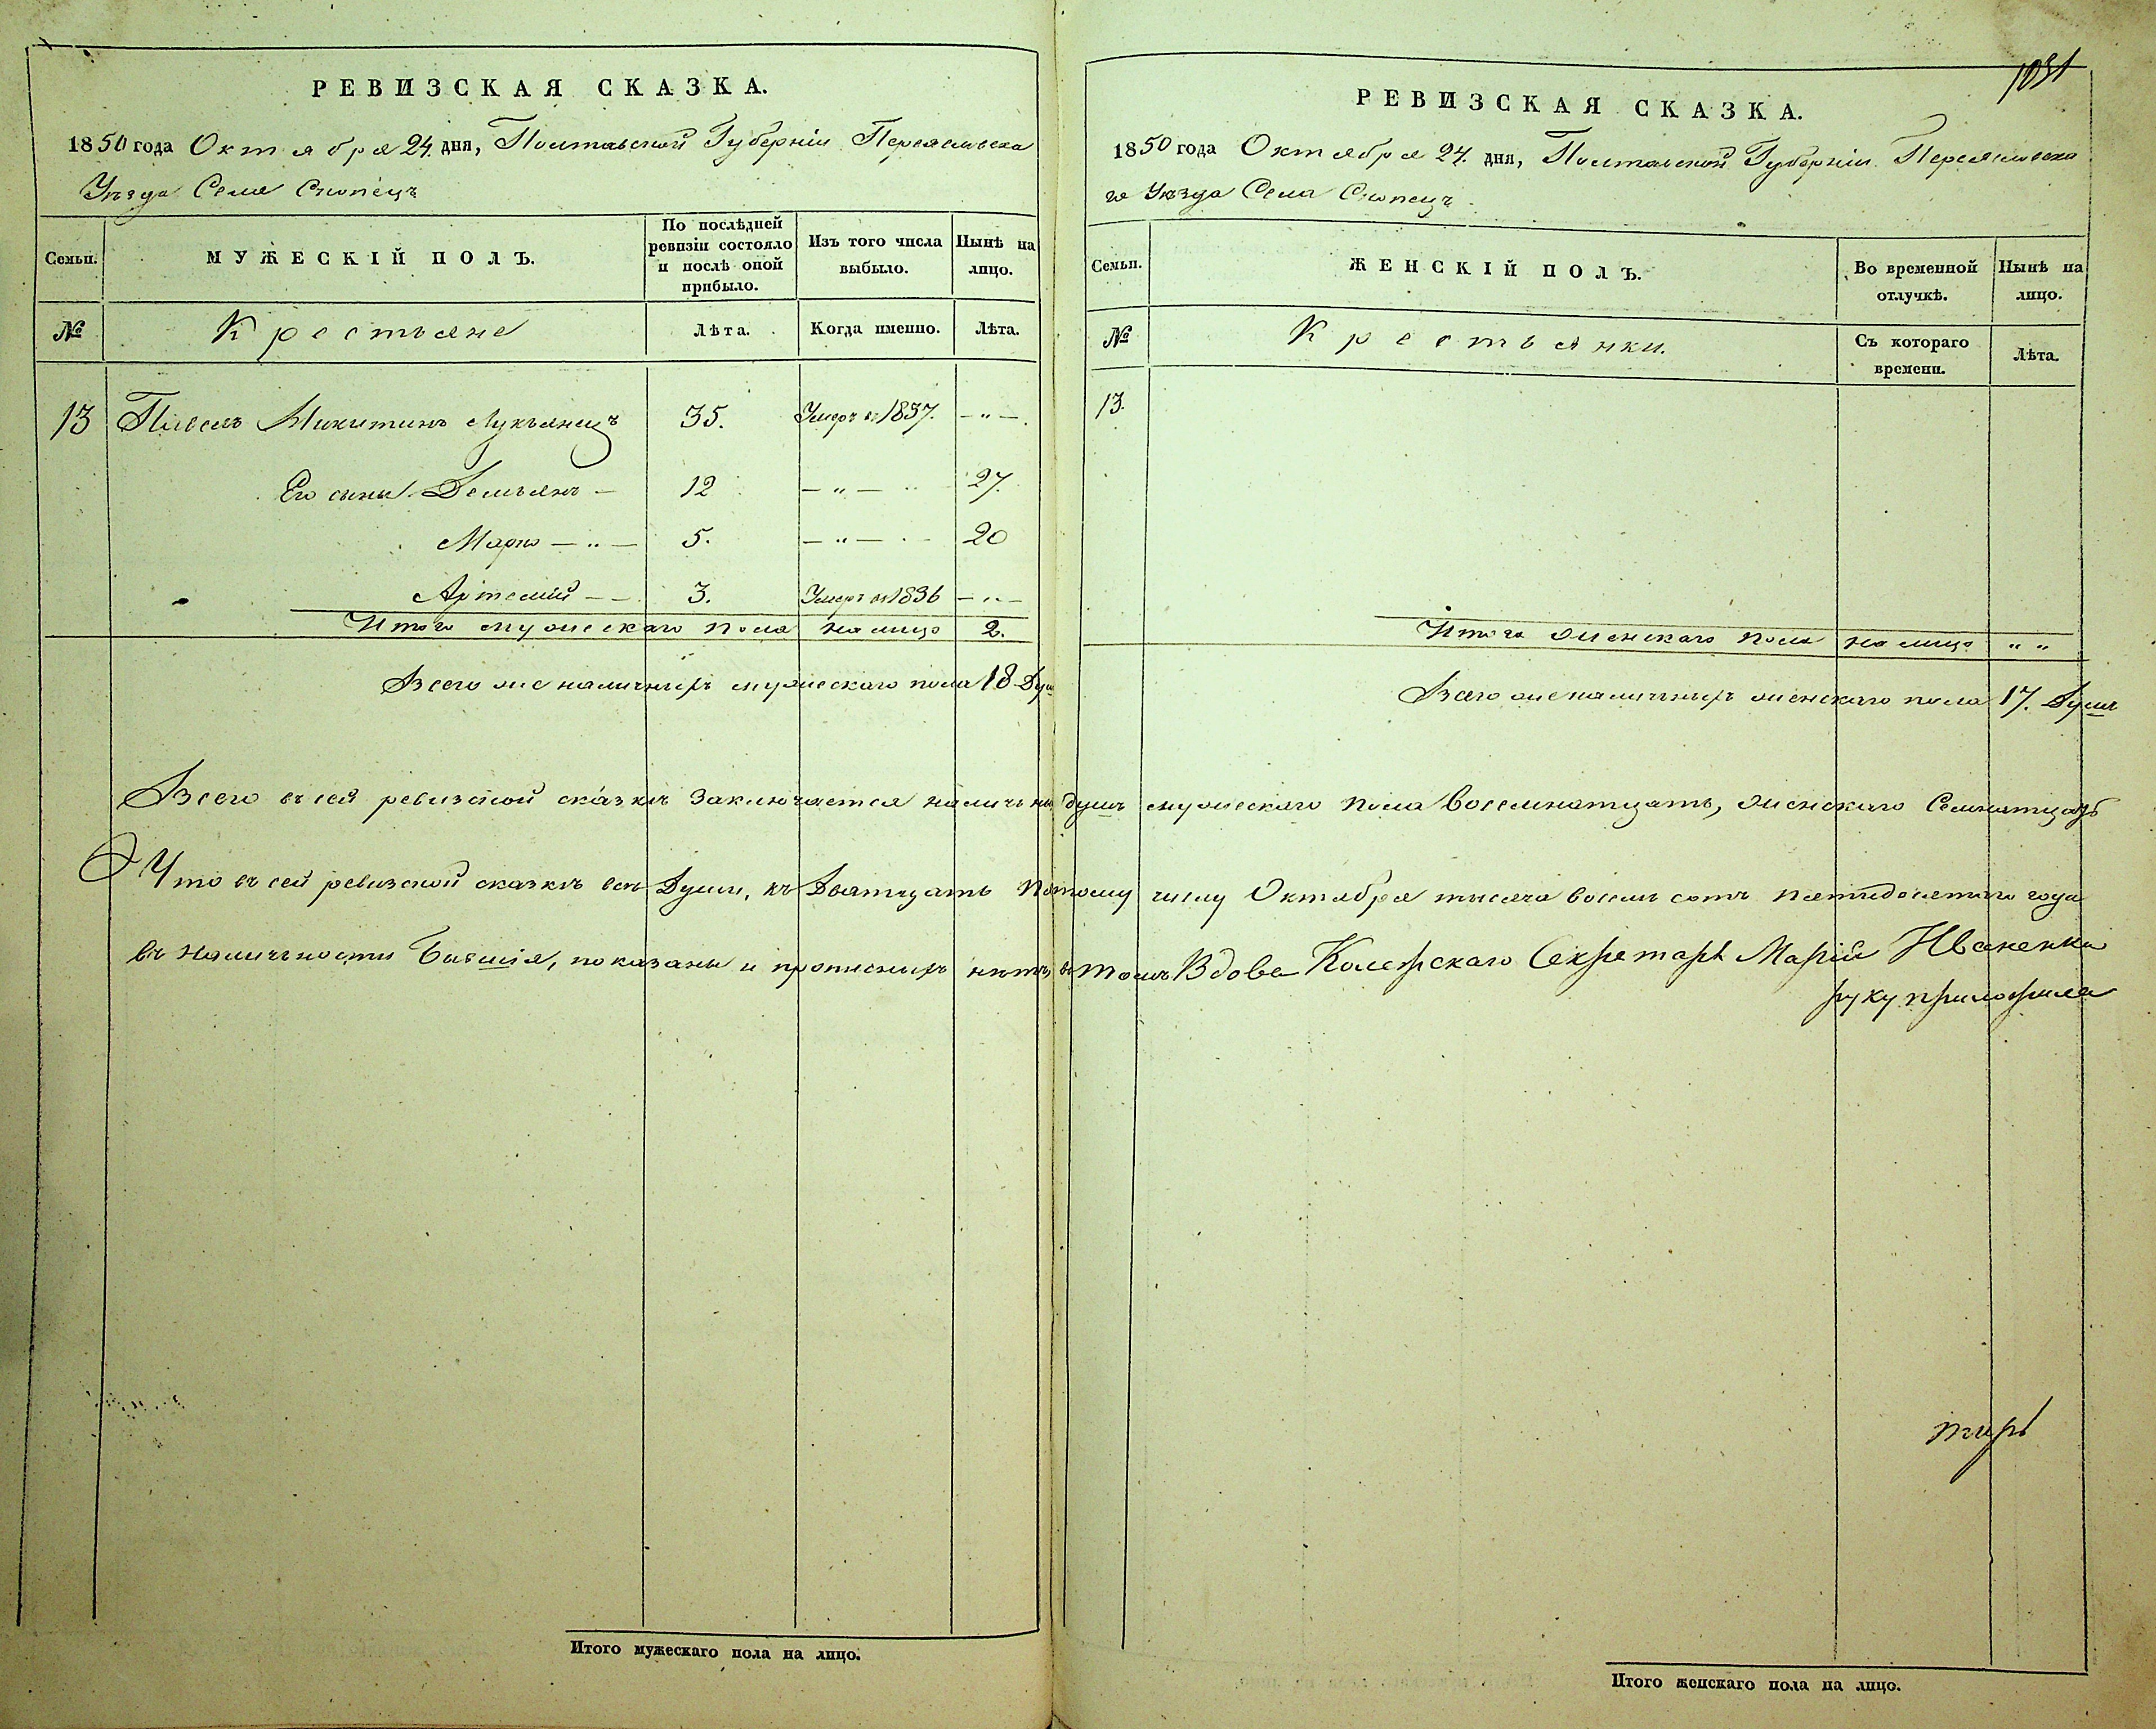 РЕВИЗСКАЯ СКАЗКА.
1850 года Октября 24. дня, Полтавской Губерніи Переяславска
Уѣзда Села Скопецъ
Семьи. МУЖЕСКІЙ ПОЛЪ. По послѣдней ревизіи состояло и послѣ оной прибыло. Изъ того числа выбыло. Нынѣ на лицо.
№ Крестьяне Лѣта. Когда именно. Лѣта.
13 Павелъ Микитинъ Лукъянецъ 35. Умеръ въ 1837. — " —
Его сыны Демьянъ — 12 — " — 27.
Марко — " — 5. — " — 20
Артемій — — 3. Умеръ въ 1836 — " —
Итого мужескаго пола на лицо 2.
Всего же наличныхъ мужескаго пола 18 Душ
Всего въ сей ревизской сказкѣ заключается наличны
Что въ сей ревизской сказкѣ всѣ Души, къ Двятцать
въ наличности Бывшія, показаны и прописныхъ нѣтъ, въ
Итого мужескаго пола на лицо.
1031
РЕВИЗСКАЯ СКАЗКА.
1850 года Октября 24. дня, Полтавской Губерніи Переяславска
го Уѣзда Села Скопецъ
Семьи. ЖЕНСКІЙ ПОЛЪ. Во временной отлучкѣ. Нынѣ на лицо.
№ Крестьянки. Съ котораго времени. Лѣта.
13.
Итого женскаго пола на лицо " "
Всего же наличныхъ женскаго пола 17. Душъ
душъ мужескаго пола восемнатцать, женскаго Семнатцать
числу Октября тысяча восемь сотъ пятидесятого года
томъ Вдова Колежскаго Секретаря Марія Иваненкова
руку приложила
Итого женскаго пола на лицо.